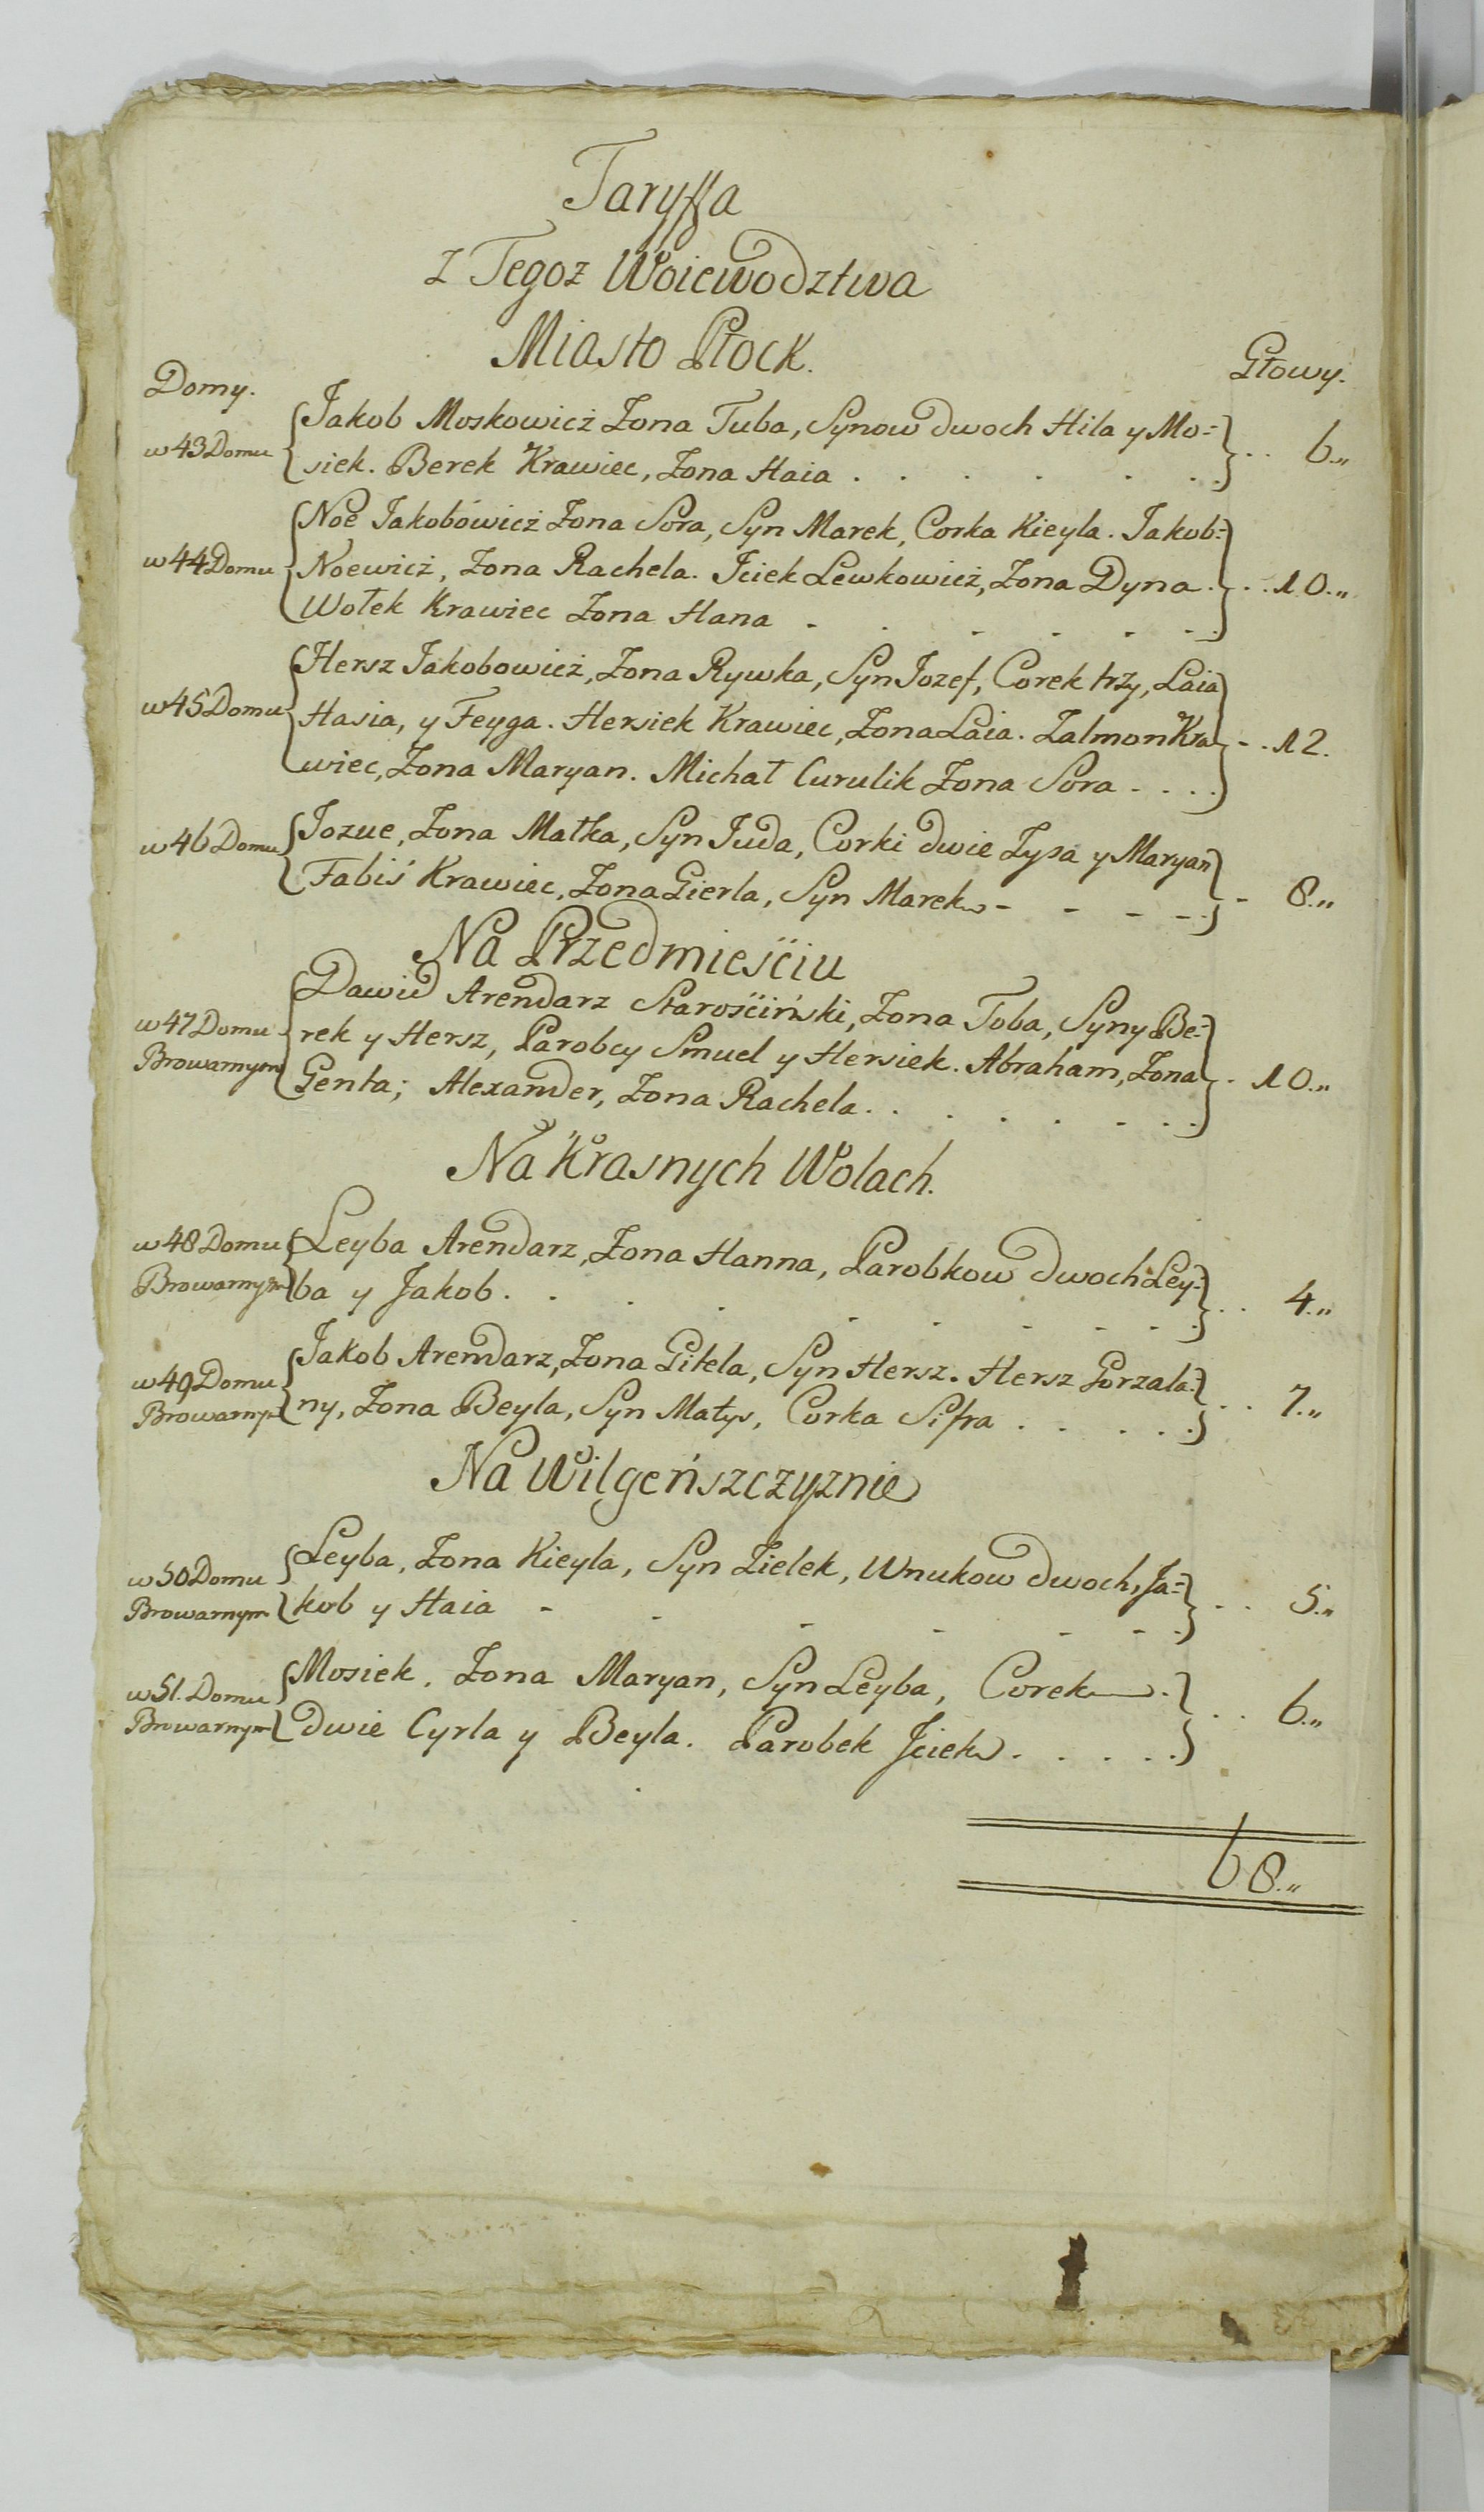 Taryffa
z Tegoz Woiewodztwa
Miasto Płock.
Domy. Głowy.
w 43 Domu Jakob Moskowicz Zona Tuba, Synow dwoch Hila y Mo= 6.„
siek. Berek Krawiec, Zona Haia
w 44 Domu Noe Jakobowicz Zona Sora, Syn Marek, Corka Kieyla. Jakub=
Noewicz, Zona Rachela. Jciek Lewkowicz, Zona Dyna. 10.„
Wołek Krawiec Zona Hana
w 45 Domu Hersz Jakobowicz, Zona Rywka, Syn Jozef, Corek trzy, Laia
Hasia, y Feyga. Hersiek Krawiec, Zona Laia. Zalmon Kra 12.
wiec, Zona Maryan. Michał Curulik Zona Sora
w 46 Domu Jozue, Zona Małka, Syn Juda, Corki dwie Zysa y Maryan
Fabiś Krawiec, Zona Gierla, Syn Marek 8.„
Na Przedmieściu
w 47 Domu Dawid Arendarz Starościński, Zona Toba, Syny Be=
Browarnym rek y Hersz, Parobcy Smuel y Hersiek. Abraham, Zona 10.„
Genta; Alexander, Zona Rachela.
Na Krasnych Wolach.
w 48 Domu Leyba Arendarz, Zona Hanna, Parobkow dwoch Ley=
Browarnym ba y Jakob. 4.„
w 49 Domu Jakob Arendarz, Zona Gitela, Syn Hersz. Hersz Gorzala=
Browarnym ny, Zona Beyla, Syn Matys, Corka Sifra 7.„
Na Wilgeńszczyznie
w 50 Domu Leyba, Zona Kieyla, Syn Zielek, Wnukow dwoch, Ja=
Browarnym kub y Haia 5.„
w 51. Domu Mosiek, Zona Maryan, Syn Leyba, Corek
Browarnym dwie Cyrla y Beyla. Parobek Jciek 6.„
68.„